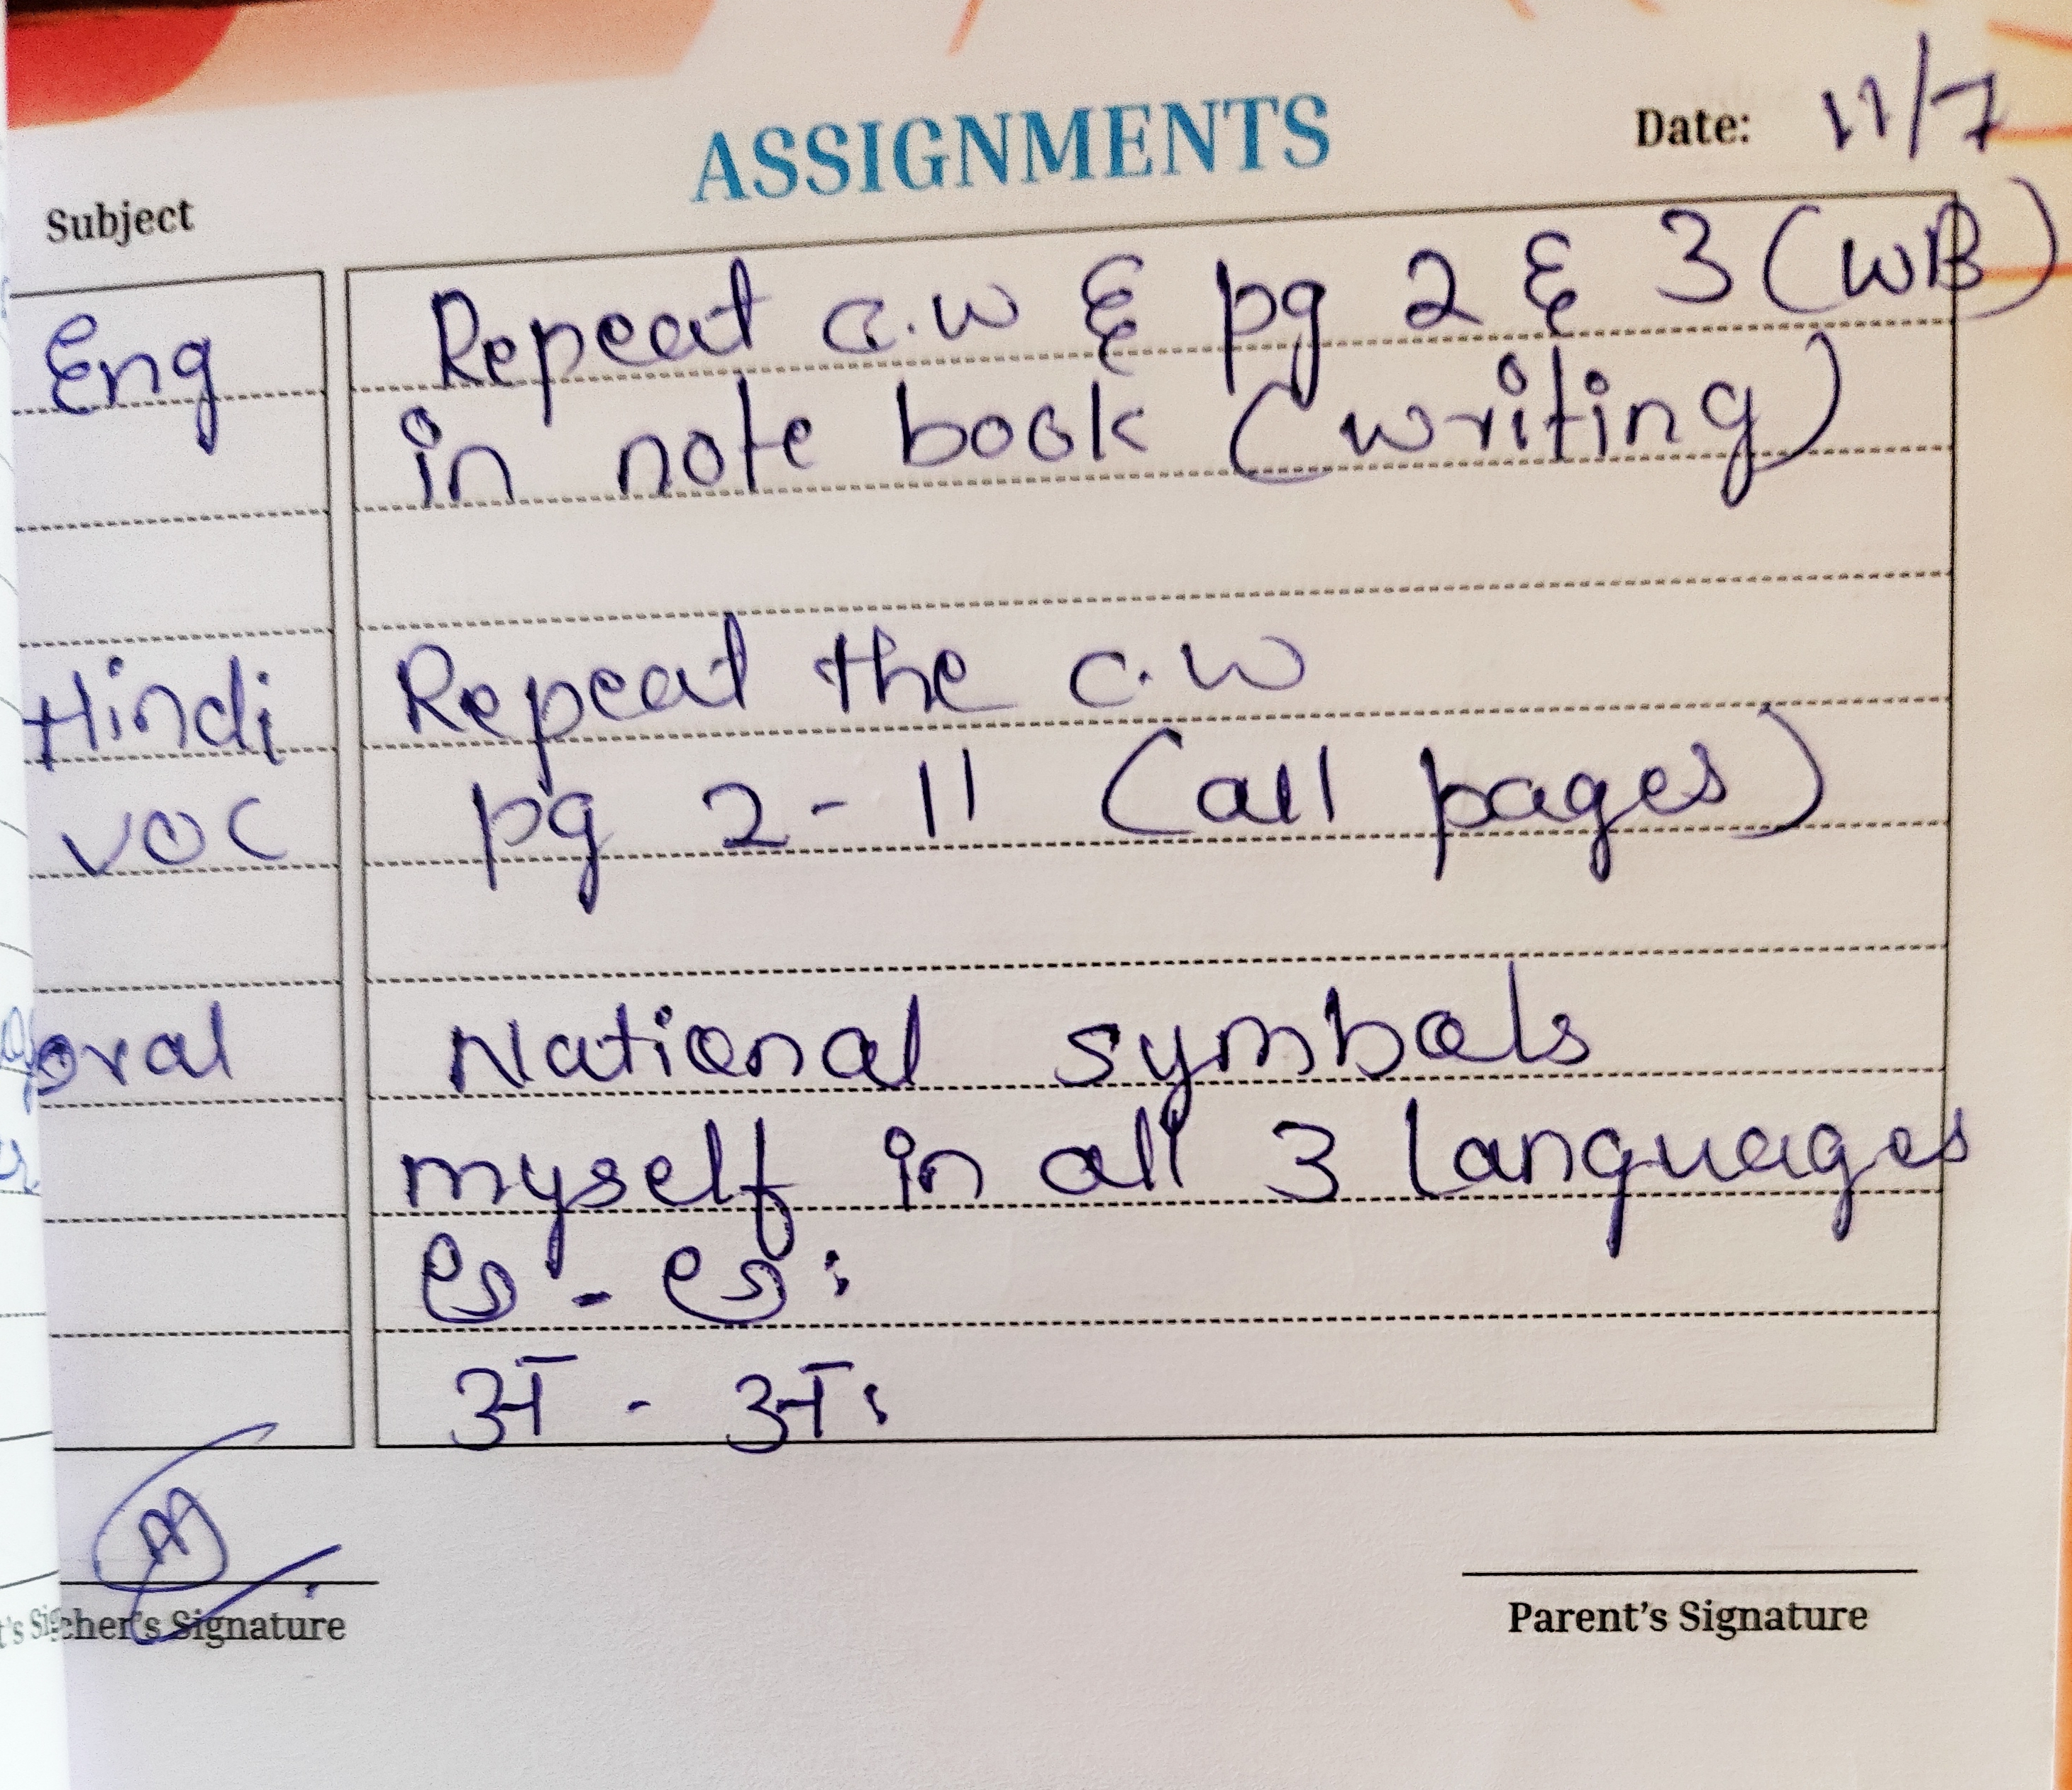 ASSIGNMENTS
Date: 11/7
Subject
Eng Repeat c.w & pg 2 & 3 (WB)
in note book (writing)
Hindi Repeat the c.w
VOC pg 2 - 11 (all pages)
oral National symbols
myself in all 3 languages
అ - అః
अ - अः
cher's Signature
Parent's Signature